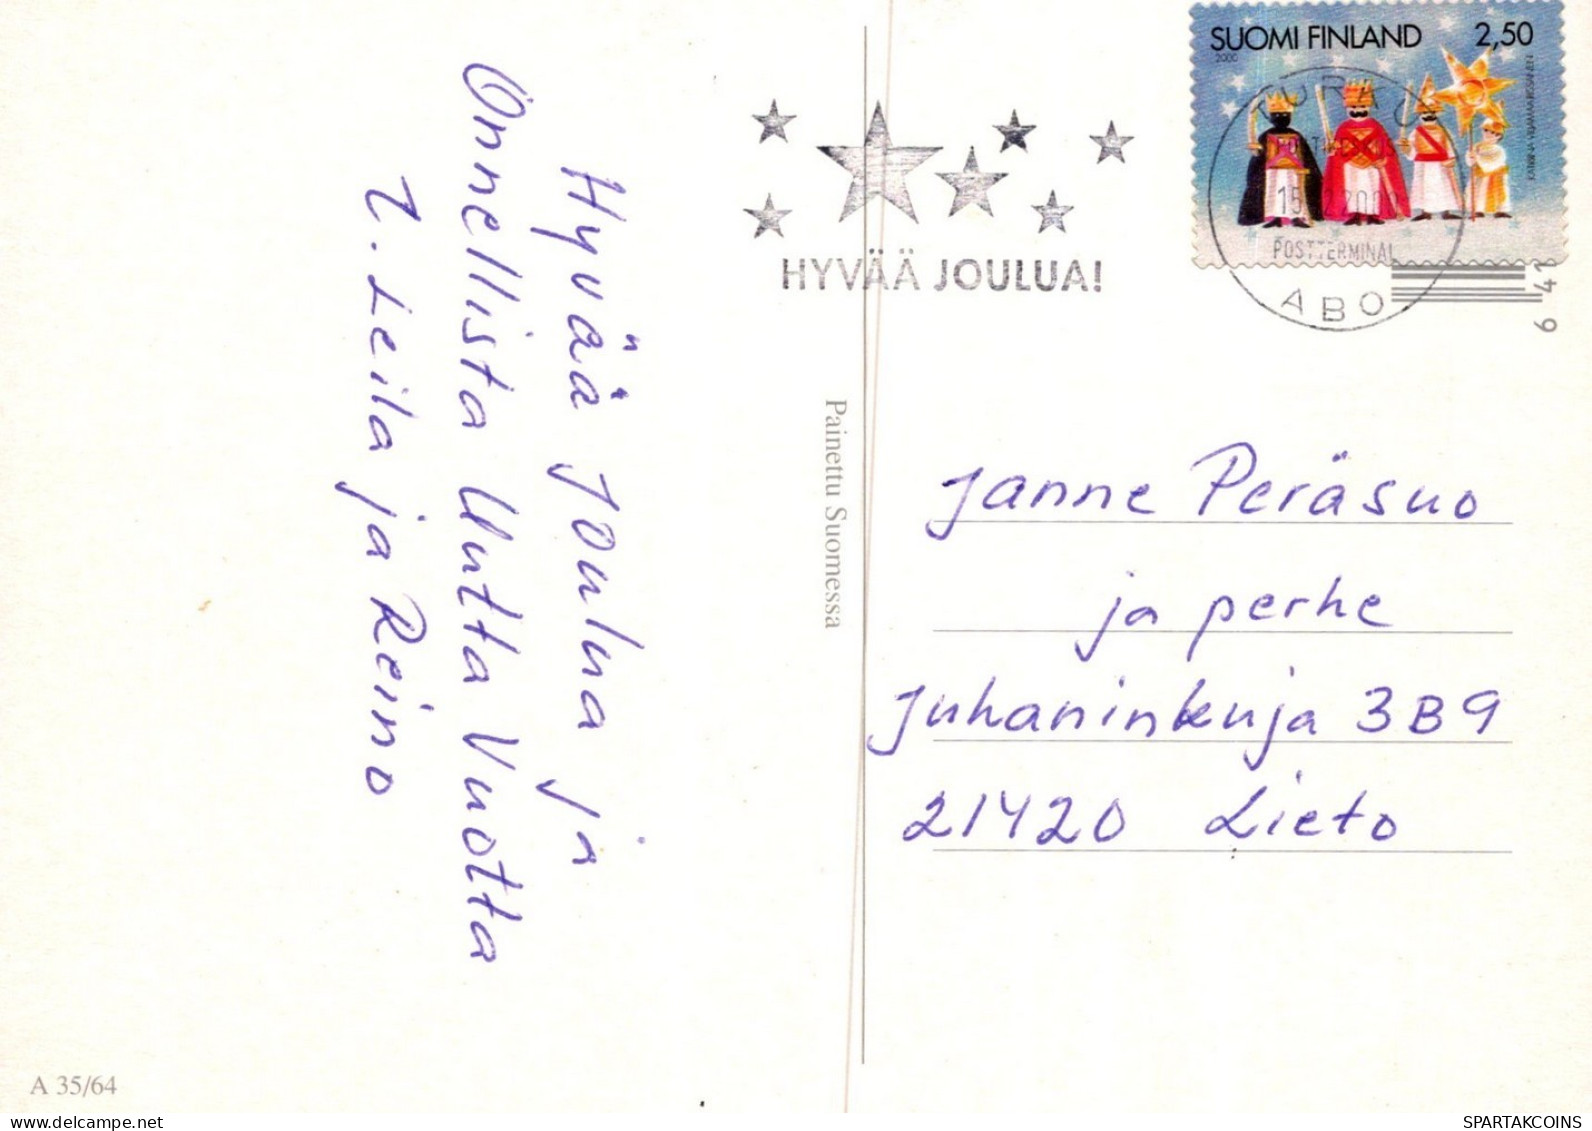 Hyvää Joulua ja
Onnellista Uutta Vuotta
T. Leila ja Reino
A 35/64
Painettu Suomessa
HYVÄÄ JOULUA!
SUOMI FINLAND 2,50
2000
TURKU
POSTTERMINAL
ABO
Janne Peräsuo
ja perhe
Juhaninkuja 3B9
21420 Lieto
SPARTAKCOINS.COM